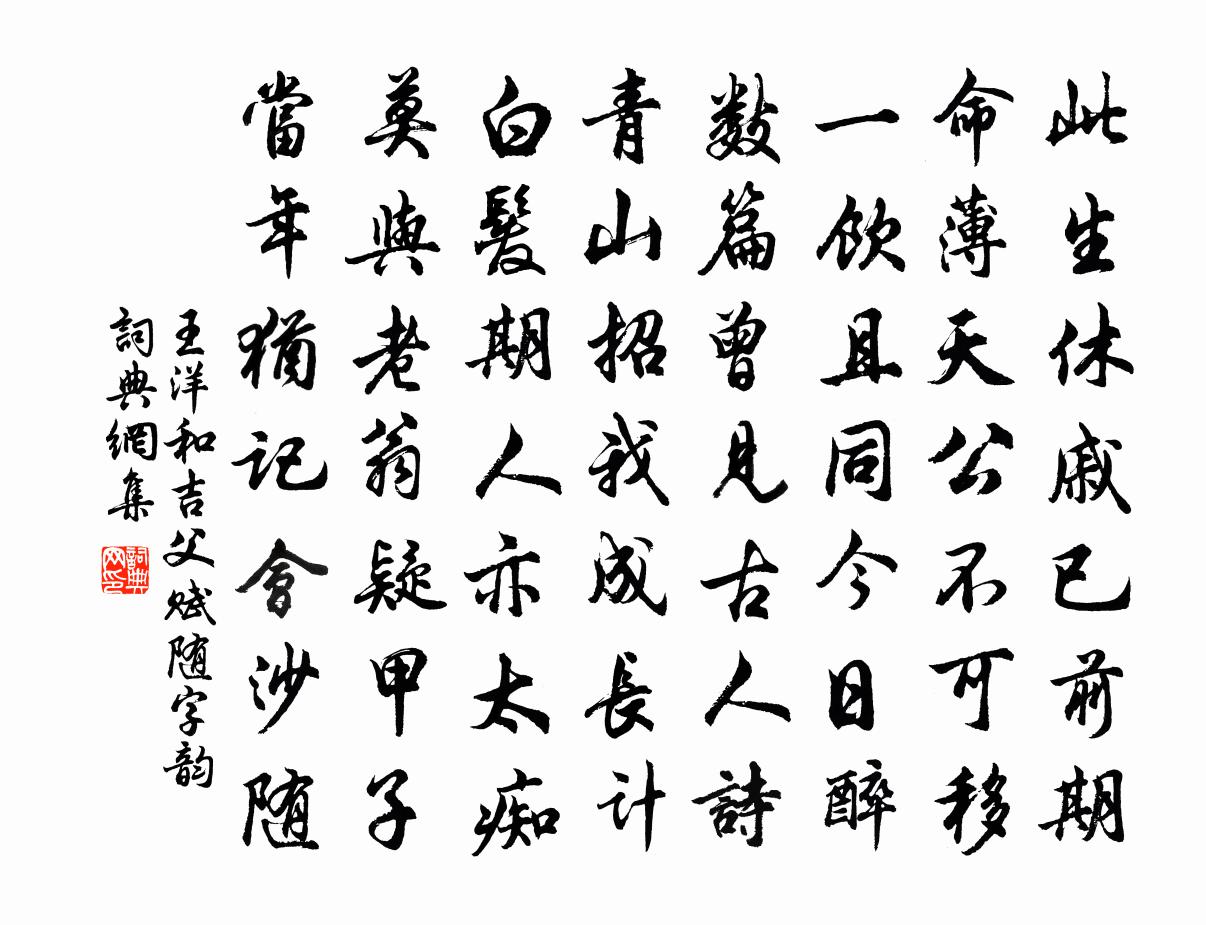 此生休戚已前期
命薄天公不可移
一飲且同今日醉
數篇曾見古人詩
青山招我成長計
白髮期人亦太痴
莫與老翁疑甲子
當年猶記會沙随
王洋和吉父赋随字韵
詞典網集
詞典网印